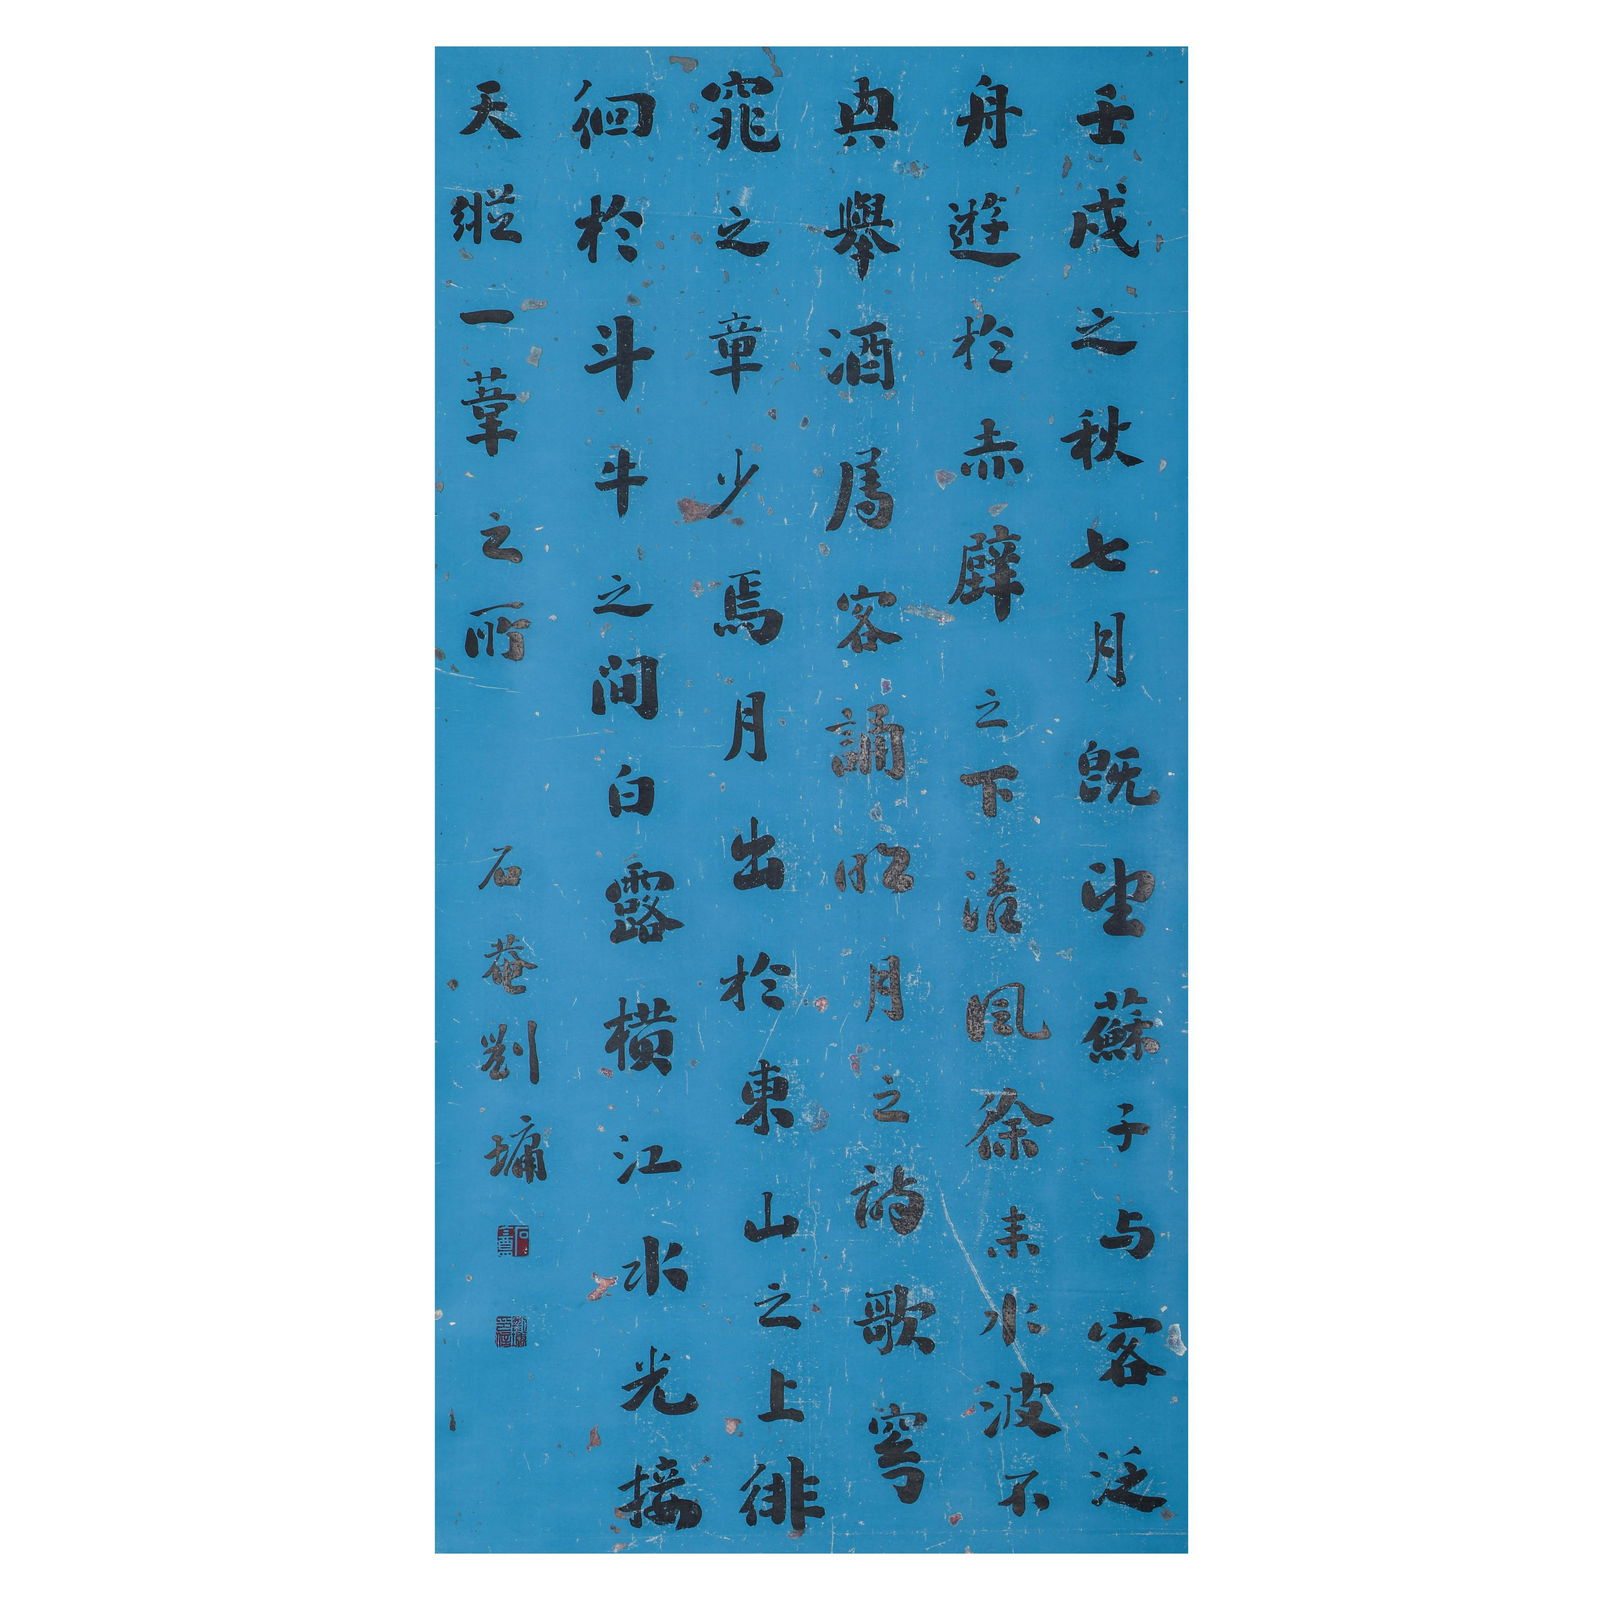 壬戌之秋七月既望蘇子与客泛
舟遊於赤壁之下清風徐来水波不
興舉酒屬客誦明月之詩歌窈
窕之章少焉月出於東山之上徘
徊於斗牛之间白露横江水光接
天縱一葦之所
石菴劉墉